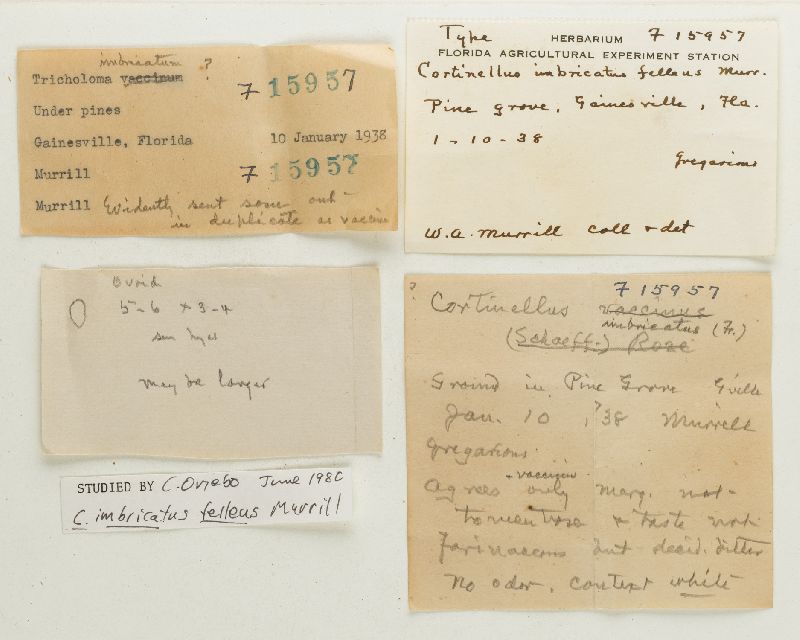 imbricatum ?
Tricholoma vaccinum
F 15957
Under pines
Gainesville, Florida 10 January 1938
Murrill F 15957
Murrill Evidently sent some out
in duplicate as vaccin
Type HERBARIUM F 15957
FLORIDA AGRICULTURAL EXPERIMENT STATION
Cortinellus imbricatus felleus Murr.
Pine grove, Gainesville, Fla.
1-10-38
Gregarious
W.A. Murrill coll + det
Ovoid
5-6 x 3-4
may be larger
STUDIED BY C. Ovrebo June 1980
C. imbricatus felleus Murrill
?
F 15957
Cortinellus vaccinus
imbricatus (Fr.)
(Schaeff.) Roze
Ground in Pine Grove G'ville
Jan. 10, '38 Murrill
Gregarious
Agrees only marg. not
tomentose & taste not
farinaceous but decid. bitter
No odor, context white